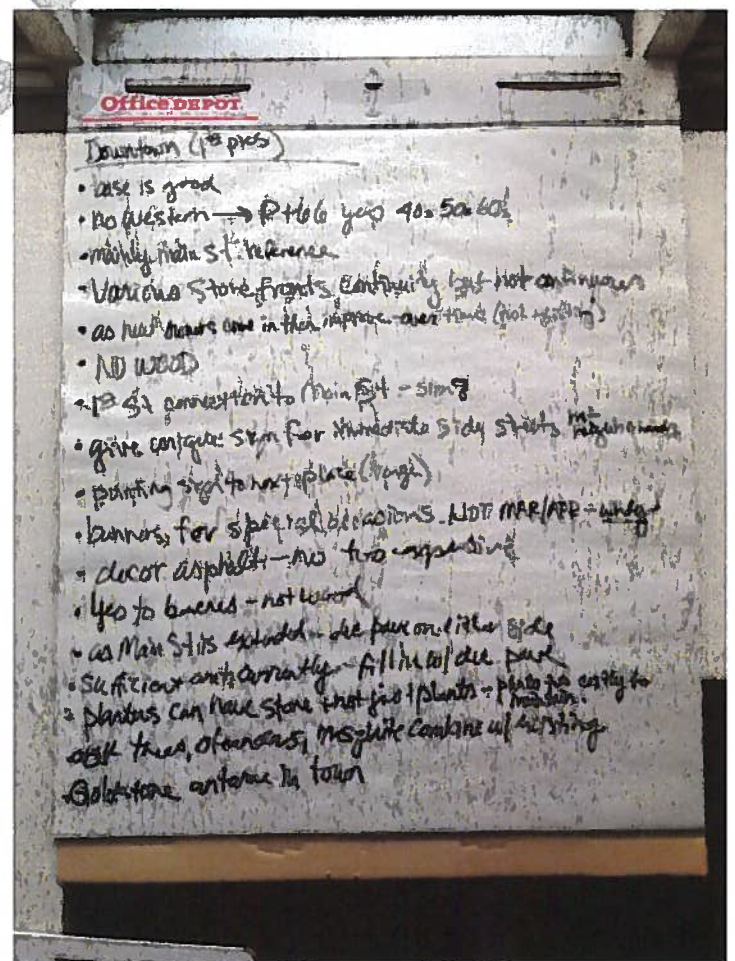 Office DEPOT
Downtown (1st pics)
• base is good
• no western → Rt 66 yes 40s 50s 60s
• mainly Main St. reference
• Various Store fronts Continuity but not continuous
• as new owners come in then improve over time (not existing)
• NO WOOD
• 1st St connection to Main St - sim
• give contiguous sim for immediate side streets not neighborhoods
• pointing sign to next place
• banners, for special occasions. NOT MAR/APR - windy
• decor asphalt - no too expensive
• Yes to benches - not wood
• as Main St is extended - dec pave on either side
• Sufficient currently - fill in w/ dec pave
• planters can have stone + not just plants - plants too costly to maintain.
trees, mesquite combine w/ existing
• Goldstone antenna in town